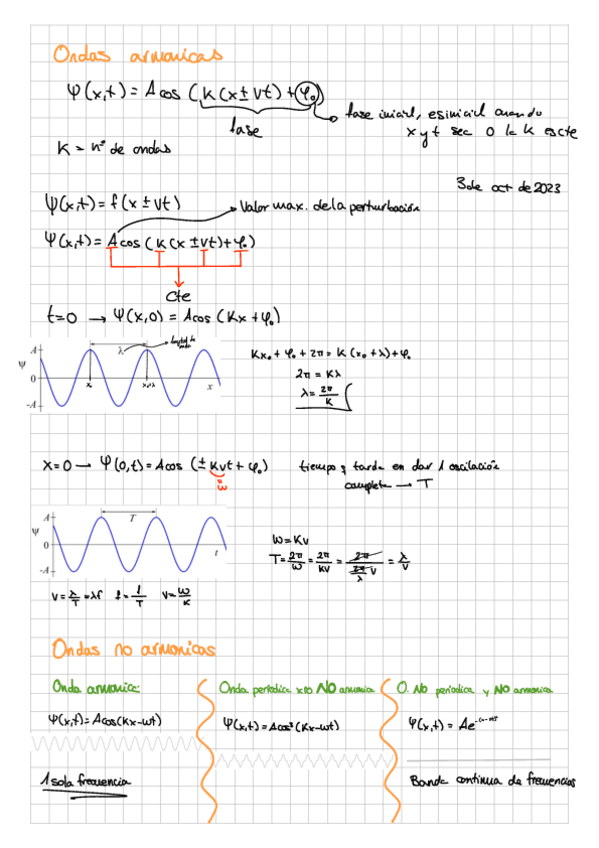 Ondas armonicas
Ψ(x,t) = A cos (K(x ± vt) + φ₀)
fase
fase inicial, es inicial cuando
x y t sea 0 la k es cte
K = nº de ondas
3 de oct de 2023
Ψ(x,t) = f(x ± vt)
Valor max. de la perturbación
Ψ(x,t) = A cos (K(x ± vt) + φ₀)
Cte
t=0 → Ψ(x,0) = A cos (Kx + φ₀)
A
Ψ
0
-A
λ
x₀
x₀+λ
x
Kx₀ + φ₀ + 2π = K(x₀ + λ) + φ₀
2π = Kλ
λ = 2π/K
x=0 → Ψ(0,t) = A cos (± Kvt + φ₀)
w
tiempo q tarda en dar 1 oscilación
completa → T
A
Ψ
0
-A
T
t
w = Kv
T = 2π/w = 2π/Kv = 2π/(2π/λ v) = λ/v
v = λ/T = λf f = 1/T v = w/K
Ondas no armonicas
Onda armonica:
Ψ(x,t) = A cos(Kx - wt)
1 sola frecuencia
Onda periodica xro NO armonica
Ψ(x,t) = A cos³ (Kx - wt)
O. No periodica y NO armonica
Ψ(x,t) = Ae
Banda continua de frecuencias